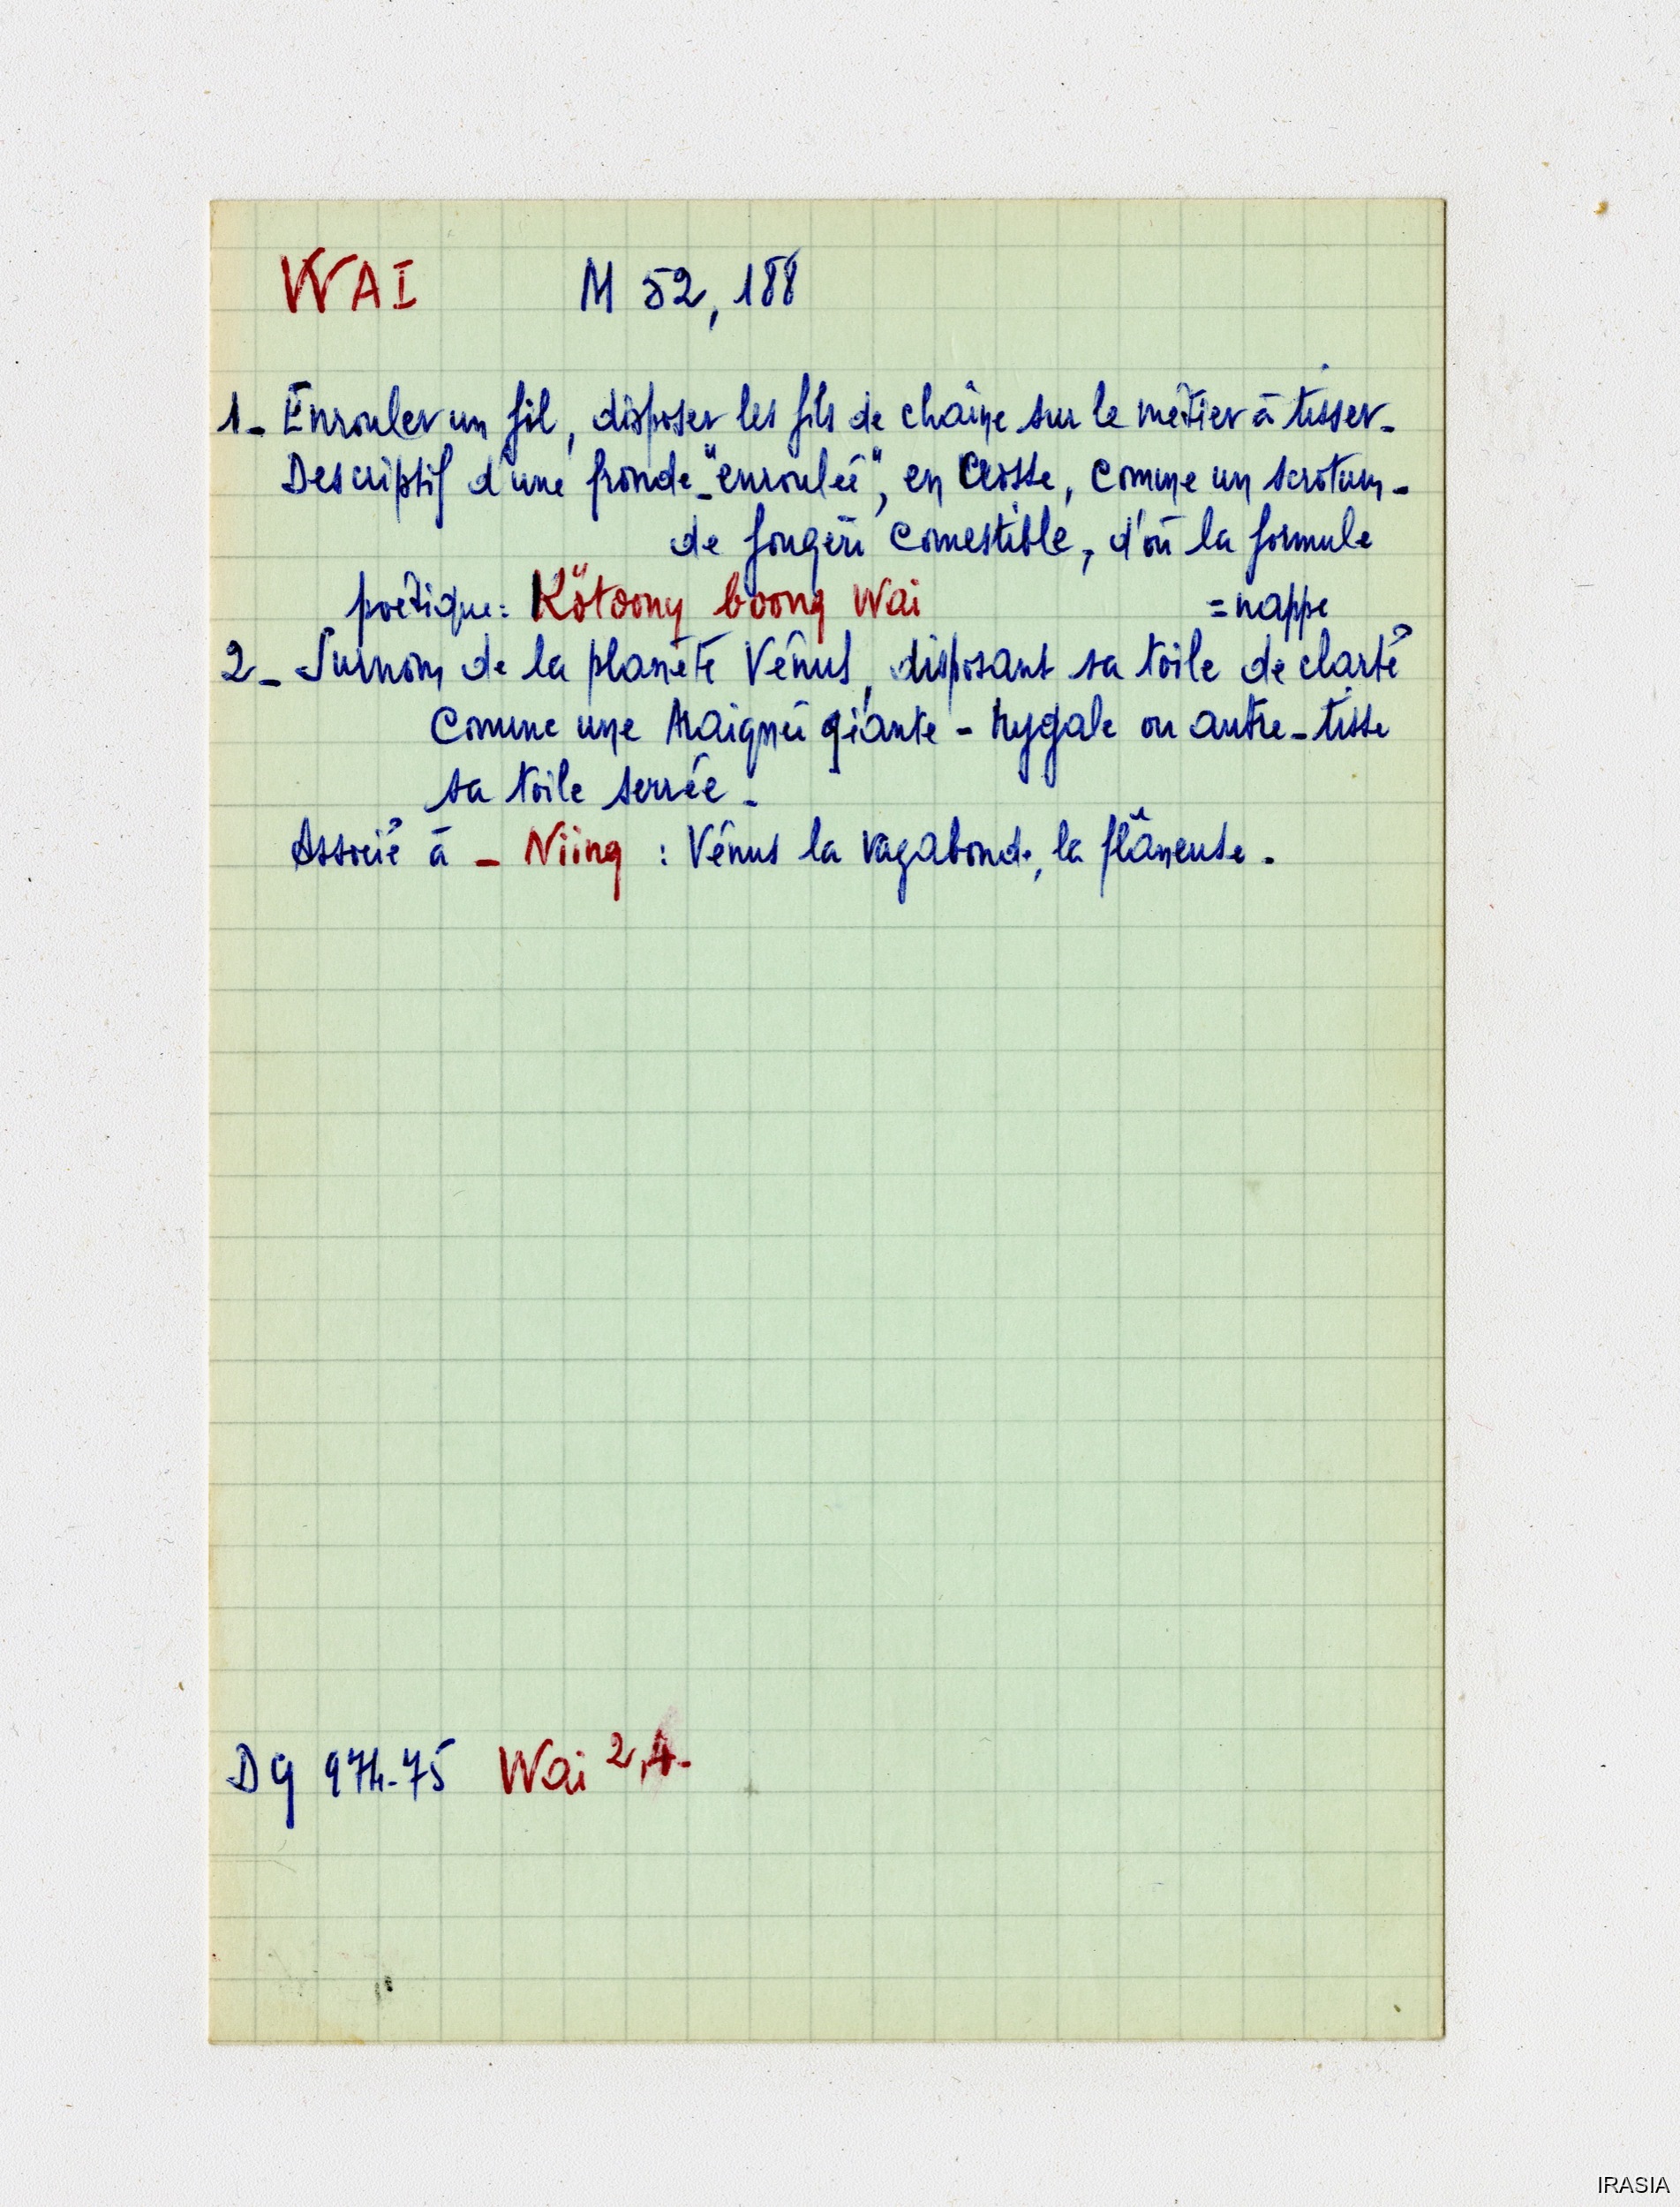 WAI M 52, 188
1- Enrouler un fil, disposer les fils de chaîne sur le métier à tisser-
Descriptif d'une fronde-"enroulée", en crosse, comme un scrotum-
de fougère comestible, d'où la formule
poétique: Kötoong boong Wai = nappe
2- Surnom de la planète Vénus, disposant sa toile de clarté
comme une Araignée géante - Mygale ou autre - tisse
sa toile serrée -
Associé à - Niing : Vénus la vagabonde, la flâneuse.
DG 974-75 Wai 2,4-
IRASIA